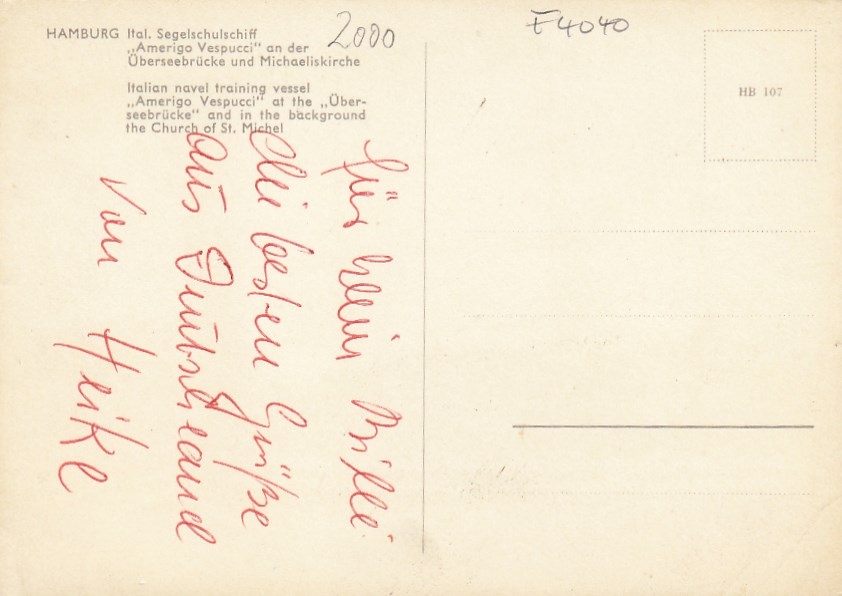 HAMBURG Ital. Segelschulschiff
„Amerigo Vespucci" an der
Überseebrücke und Michaeliskirche
Italian navel training vessel
„Amerigo Vespucci" at the „Über-
seebrücke" and in the background
the Church of St. Michel
2000
F4040
HB 107
für
die besten Grüße
aus Deutschland
von Heike